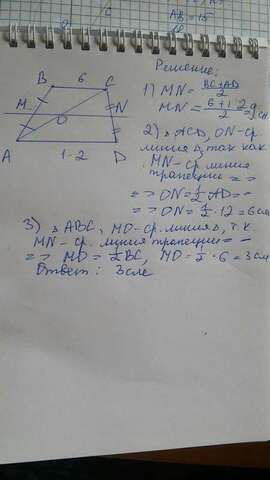 C
AB = 15
Решение:
B 6 C
M O N
A 1-2 D
1) MN = BC+AD / 2
MN = 6+12 / 2 = 9см
2) ACD, ON-ср.
линия △ так как
MN-ср линия
трапеции = >
=> ON = 1/2 AD =
=> ON = 1/2 · 12 = 6см
3) △ ABC, MO-ср. линия △, т.к.
MN-ср. линия трапеции =
=> MO = 1/2 BC, MO = 1/2 · 6 = 3 см
Ответ: 3см